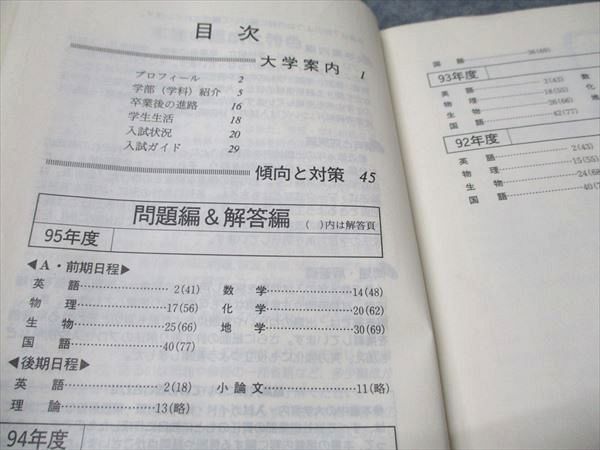 目次
大学案内 1
プロフィール 2
学部（学科）紹介 5
卒業後の進路 16
学生生活 18
入試状況 20
入試ガイド 29
傾向と対策 45
問題編＆解答編 （ ）内は解答頁
95年度
◀A・前期日程▶
英語………2(41) 数学………14(48)
物理………17(56) 化学………20(62)
生物………25(66) 地学………30(69)
国語………40(77)
◀後期日程▶
英語………2(18) 小論文………11(略)
理論………13(略)
94年度
国語………36(66)
93年度
英語………2(43) 数
物理………18(55) 化
生物………26(66) 地
国語………42(77)
92年度
英語………2(43)
物理………15(55)
生物………24(68
国語………40(7